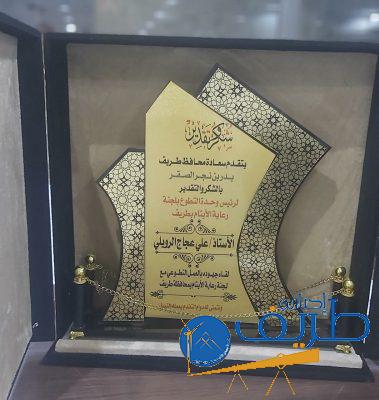 شكر وتقدير
يتقدم سعادة محافظ طريف
بدر بن نجر الصقر
بالشكر والتقدير
لرئيس وحدة التطوع بلجنة
رعاية الأيتام بطريف
الأستاذ/ علي عجاج الرويلي
لقاء جهوده بالعمل التطوعي مع
لجنة رعاية الأيتام بمحافظة طريف
إخبارية
طريف